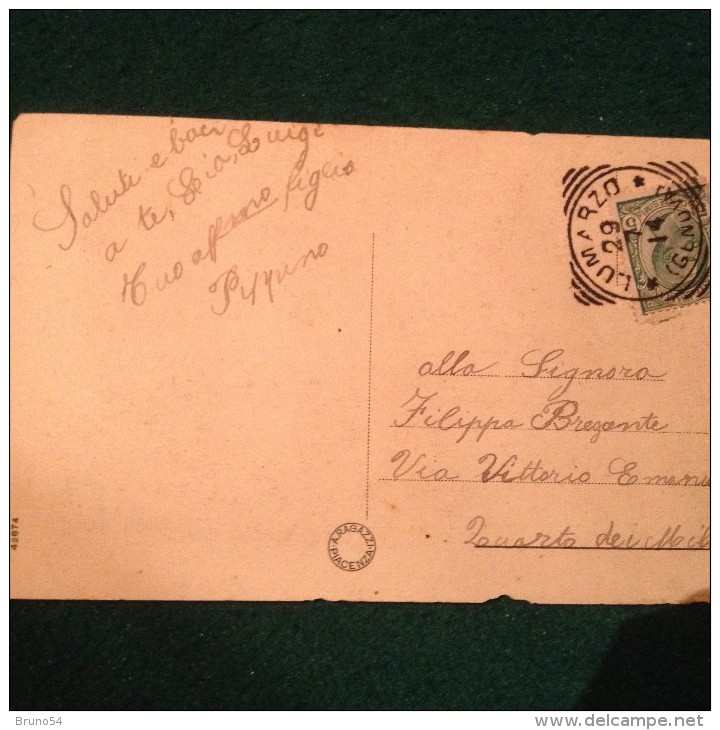 Saluti e baci
a te, Zia, Luigi
tuo affmo figlio
LUMARZO
(GENOVA)
29
7
14
5
alla Signora
Filippa Bregante
Via Vittorio Emanu
Quarto dei Mil
A. RAGAZZI
PIACENZA
42874
Bruno54
delcampe.net